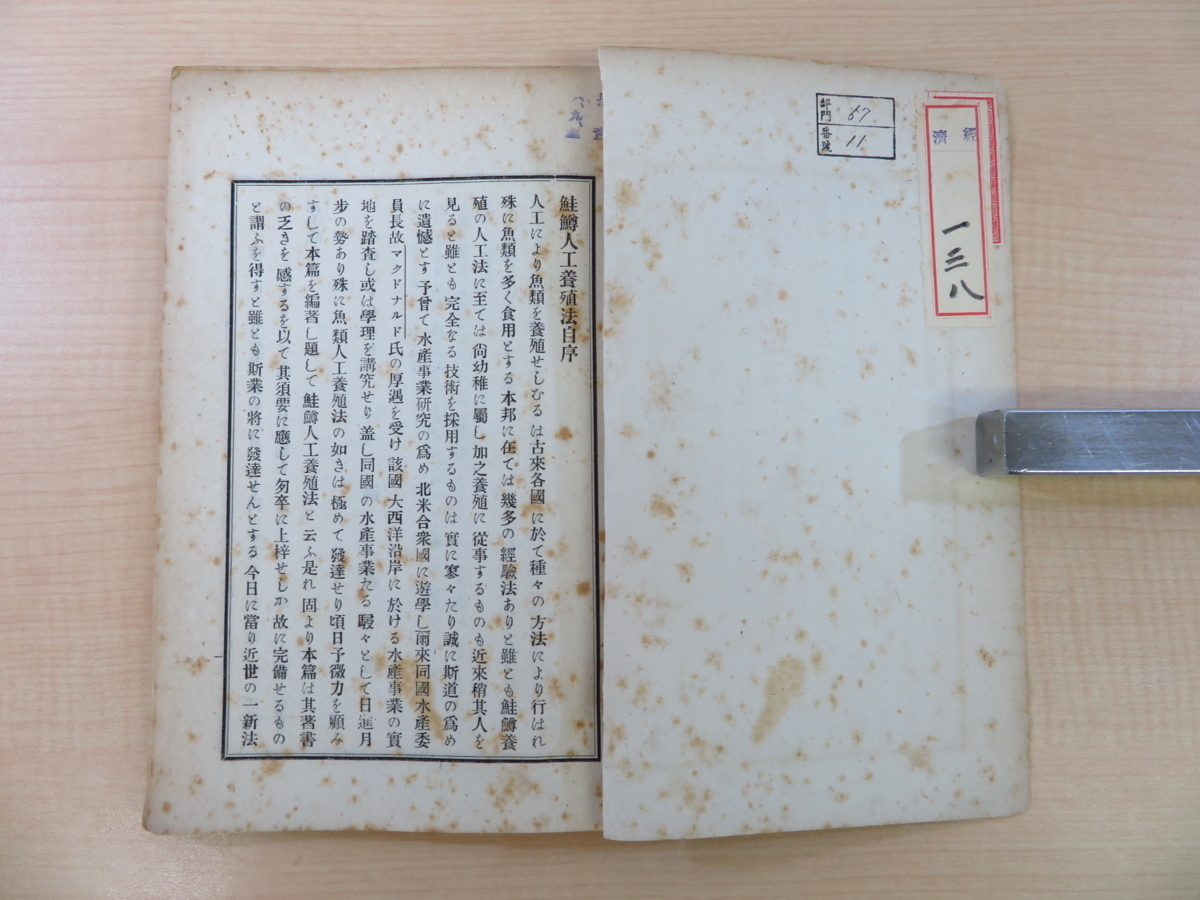 經濟
一三八
部門 67
番號 11
鮭鱒人工養殖法自序
人工により魚類を養殖せしむるは古來各國に於て種々の方法により行はれ
殊に魚類を多く食用とする本邦に在ては幾多の經驗法ありと雖とも鮭鱒養
殖の人工法に至ては尙幼稚に屬し加之養殖に從事するものも近來稍其人を
見ると雖とも完全なる技術を採用するものは實に寥々たり誠に斯道の爲め
に遺憾とす予曾て水產事業硏究の爲め北米合衆國に遊學し爾來同國水產委
員長故マクドナルド氏の厚遇を受け該國大西洋沿岸に於ける水產事業の實
地を踏査し或は學理を講究せり盖し同國の水產事業たる駸々として日進月
步の勢あり殊に魚類人工養殖法の如きは極めて發達せり頃日予微力を顧み
すして本篇を編著し題して鮭鱒人工養殖法と云ふ是れ固より本篇は其著書
の乏きを感するを以て其須要に應して匆卒に上梓せしか故に完備せるもの
と謂ふを得すと雖とも斯業の將に發達せんとする今日に當り近世の一新法